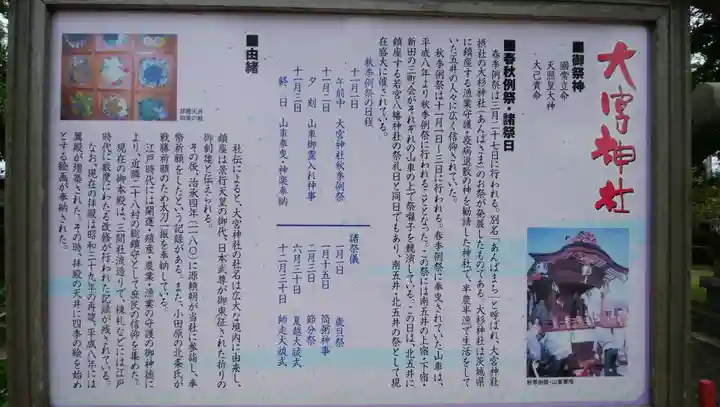 大宮神社
■御祭神
國常立命
天照皇大神
大己貴命
■春秋例祭・諸祭日
春季例祭は三月二十七日に行われる。別名「あんばまち」と呼ばれ、大宮神社
摂社の大杉神社(あんばさま)のお祭が発展したものである。大杉神社は茨城県
に鎮座する漁業守護・疫病退散の神を勧請した神社で、半農半漁で生活をして
いた五井の人々に広く信仰されていた。
秋季例祭は十一月一日〜三日に行われる。春季例祭に奉曳されていた山車は、
平成八年より秋季例祭に行われることとなった。この祭には南五井の上宿・下宿・
新田の三町会がそれぞれの山車の上で祭囃子を競演している。この日は、北五井に
鎮座する若宮八幡神社の祭礼日と同日でもあり、南五井・北五井の祭として現
在盛大に催されている。
秋季例祭の日程
十一月一日
午前中 大宮神社秋季例祭
十一月二日
夕刻 山車御霊入れ神事
十一月三日
終日 山車奉曳・神楽奉納
諸祭儀
一月一日 歳旦祭
一月十五日 筒粥神事
二月三日 節分祭
六月三十日 夏越大祓式
十二月三十日 師走大祓式
■由緒
社伝によると、大宮神社の社名は広大な境内に由来し、
鎮座は景行天皇の御代、日本武尊が御東征された折りの
御創建と伝えられる。
その後、治承四年(一一八〇)に源頼朝が当社に参詣し、奉
幣祈願をしたという記録がある。また、小田原の北条氏が
戦勝祈願のため太刀一振を奉納している。
江戸時代には開運・殖産・農業・漁業の守護の御神徳に
より、近隣二十八村の総鎮守として庶民の信仰を集めた。
現在の御本殿は、三間社流造りで、棟札などには江戸
時代に数度にわたる改修が行われた記録が残されている。
なお、現在の拝殿は昭和三十九年の再建、平成八年には
翼殿が増築された。その時、拝殿の天井に四季の絵を始め
とする絵画が奉納された。
拝殿天井
四季の絵
秋季例祭・山車奉曳